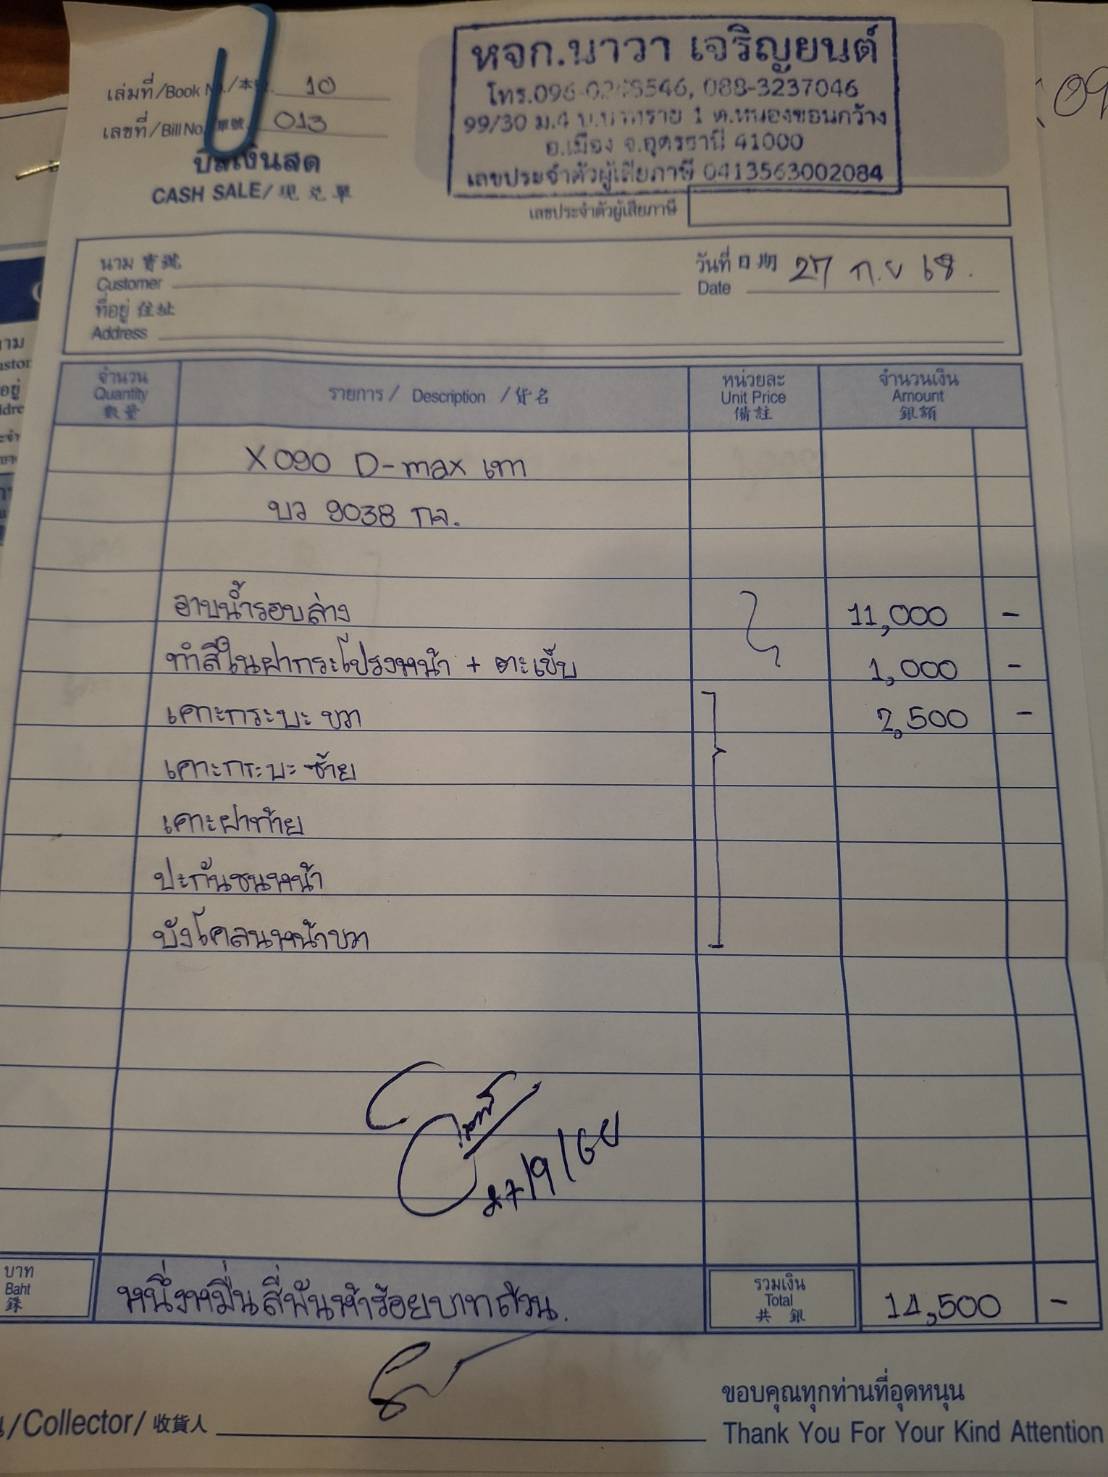 หจก.นาวา เจริญยนต์
โทร.096- 8546, 088-3237046
99/30 ม.4 ต.หนองขอนกว้าง
อ.เมือง จ.อุดรธานี 41000
เลขประจำตัวผู้เสียภาษี 0413563002084
เล่มที่/Book 10
เลขที่/Bill No. 013
บิลเงินสด
CASH SALE/
เลขประจำตัวผู้เสียภาษี
นาม
Customer
วันที่ 日期 27 ก.ย 68.
Date
ที่อยู่ 住址
Address
จำนวน
Quantity
數量
รายการ / Description / 貨名
หน่วยละ
Unit Price
備註
จำนวนเงิน
Amount
銀額
X090 D-max เทา
บว 9038 กจ.
อาบน้ำรอบล่าง 11,000 -
ทำสีในฝากระโปรงหน้า + ตะเข็บ 1,000 -
เคาะกระบะ ขวา 2,500 -
เคาะกระบะ ซ้าย
เคาะฝาท้าย
ปะกันชนหน้า
บังโคลนหน้าขวา
27/9/68
บาท
Baht
銖
หนึ่งหมื่นสี่พันห้าร้อยบาทถ้วน.
รวมเงิน
Total
共 銀
14,500 -
/Collector/ 收貨人
ขอบคุณทุกท่านที่อุดหนุน
Thank You For Your Kind Attention